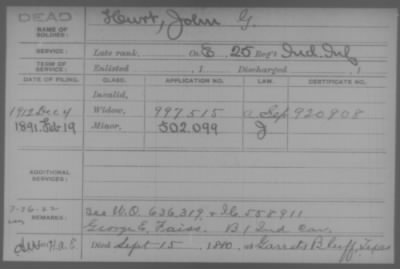 DEAD
NAME OF SOLDIER: Hurt, John G.
SERVICE: Late rank, Co. E 25 Reg't Ind. Inf.
TERM OF SERVICE: Enlisted , 1 Discharged , 1
DATE OF FILING. CLASS. APPLICATION NO. LAW. CERTIFICATE NO.
Invalid,
1912 Dec 4 Widow, 997.515 Sep 920.808
1891. Feb 19 Minor, 502.099 J
ADDITIONAL SERVICES:
7-26-22
REMARKS: see W.O. 636,319, & I.C. 558911
George E. Faiss. B 1 Ind Cav.
Died Sept 15 , 1880, at Garrets Bluff, Texas